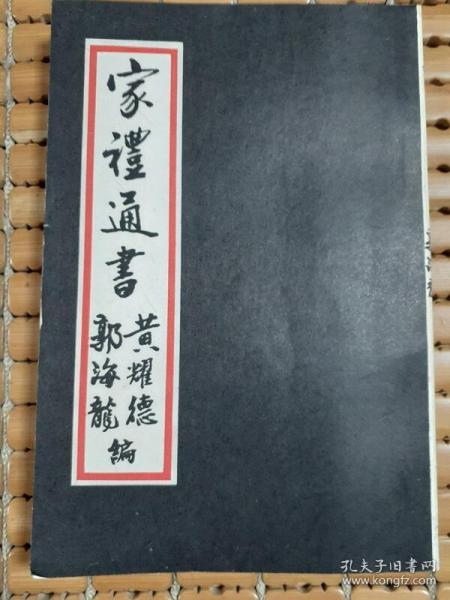 家禮通書
黃耀德
郭海龍
編
孔夫子旧书网
www.kongfz.com